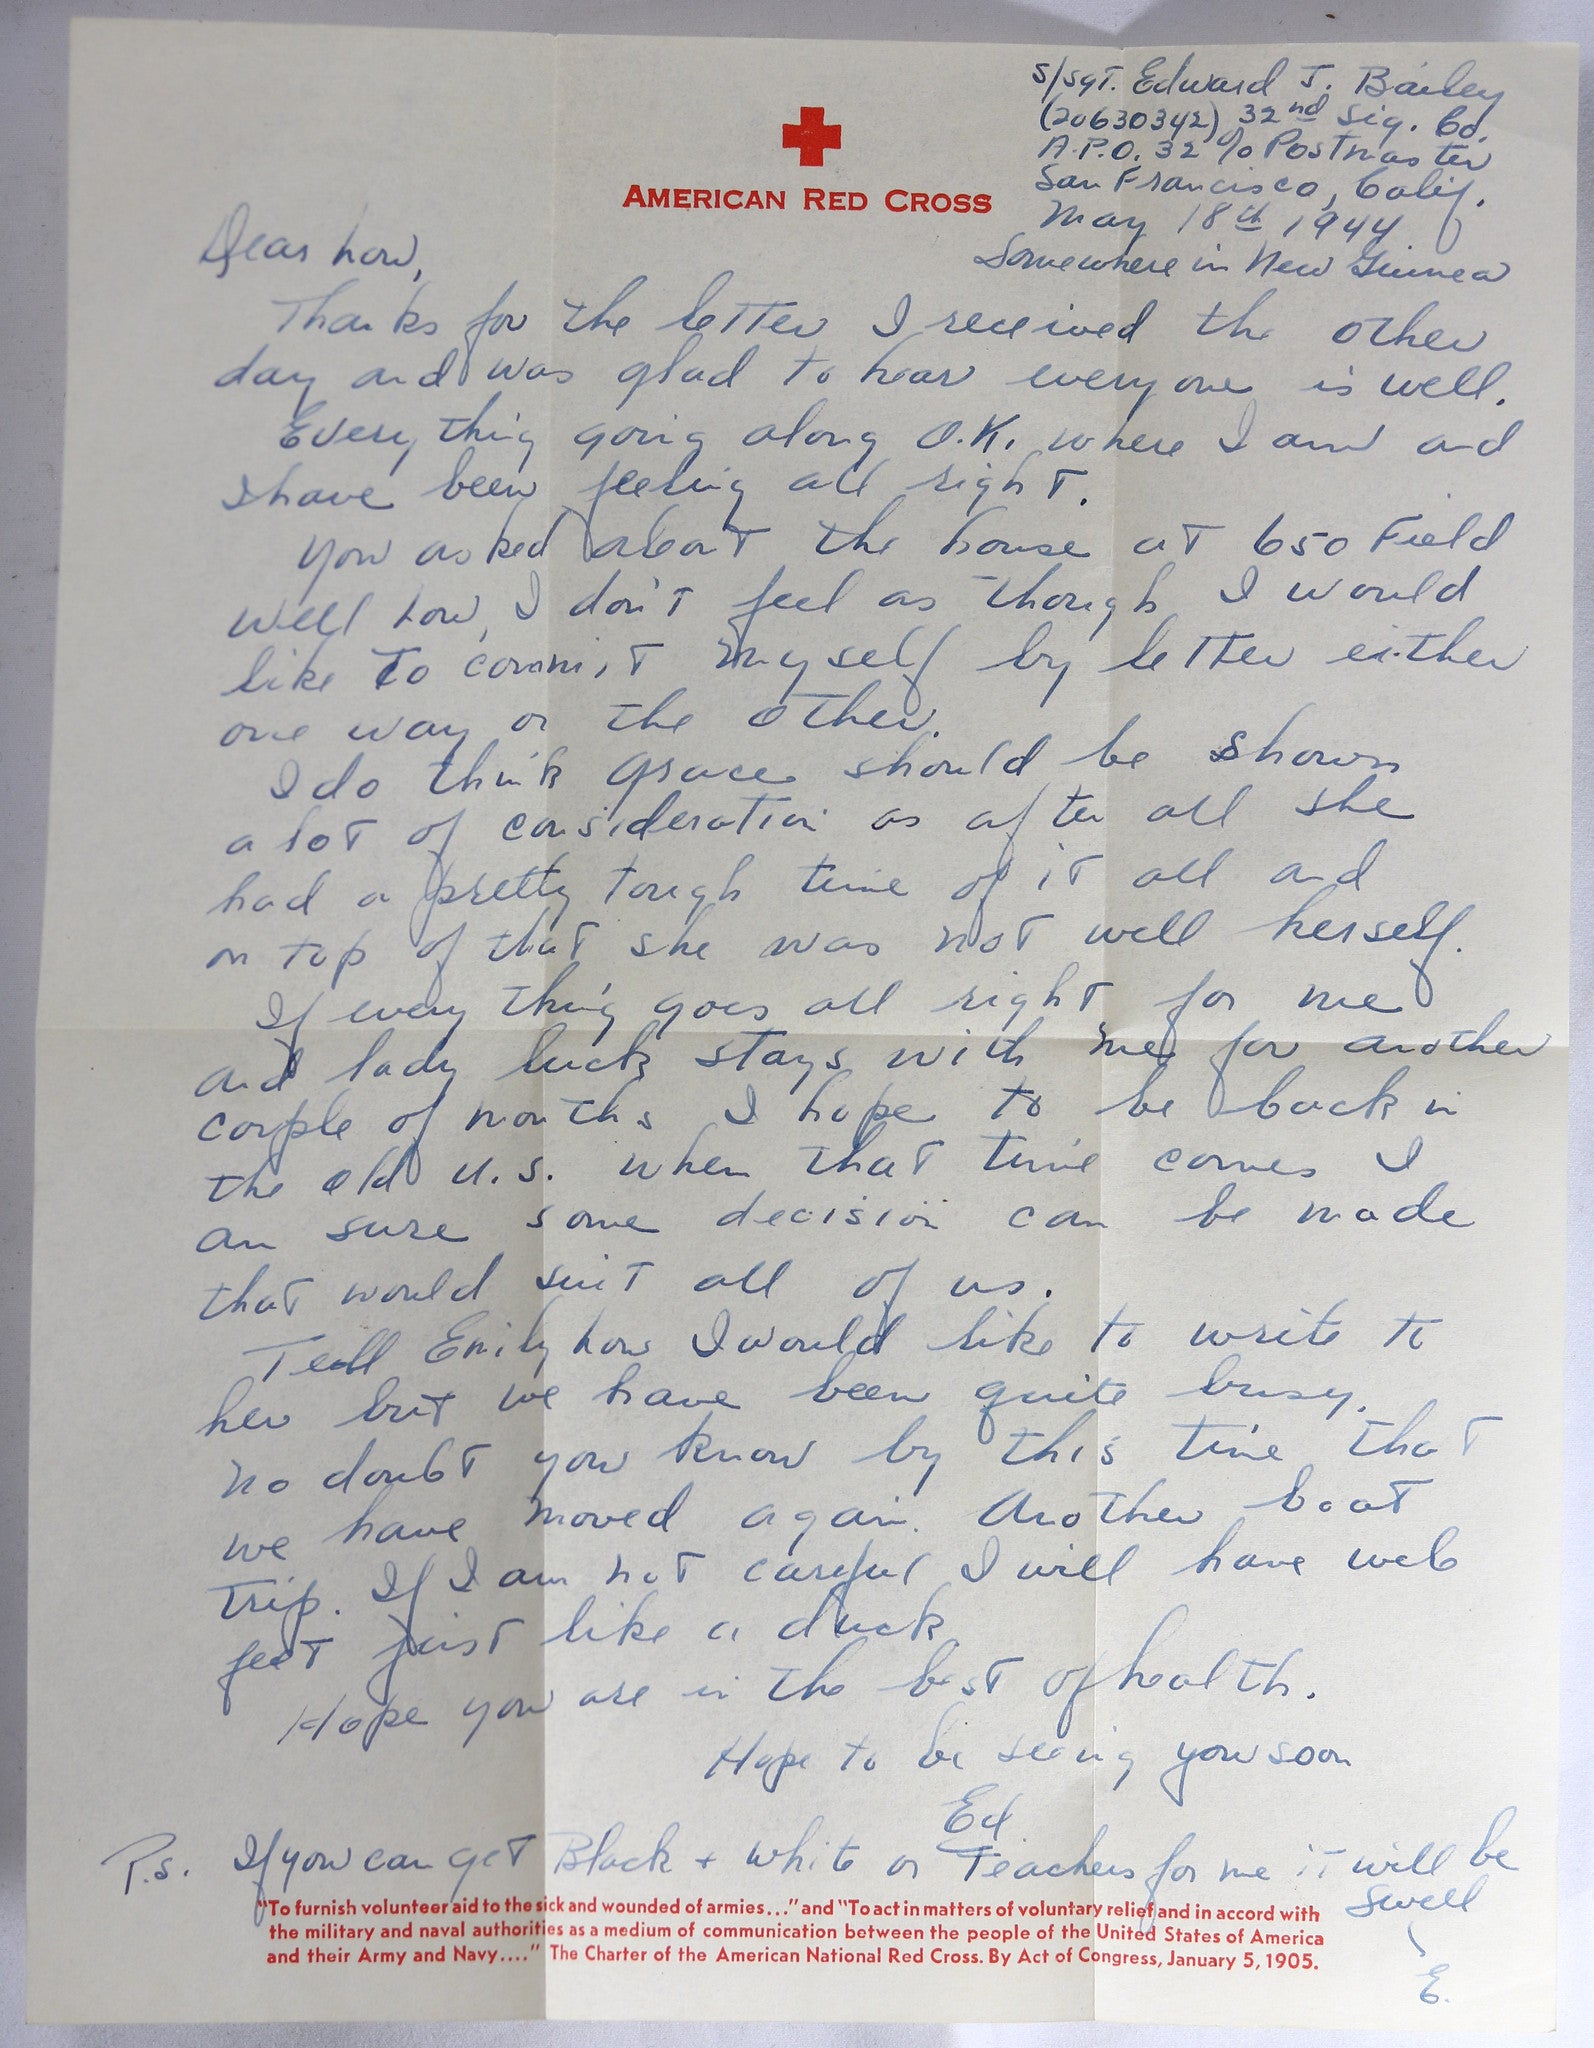 S/Sgt. Edward J. Bailey
(20630342) 32nd Sig. Co.
A.P.O. 32 % Postmaster
San Francisco, Calif.
May 18th 1944
Somewhere in New Guinea
AMERICAN RED CROSS
Dear
Thanks for the letter I received the other
day and was glad to hear everyone is well.
Everything going along O.K. where I am and
I have been feeling all right.
You asked about the house at 650 Field
well I don't feel as though I would
like to commit myself by letter either
one way or the other.
I do think Grace should be shown
a lot of consideration as after all she
had a pretty tough time of it all and
on top of that she was not well herself.
If everything goes all right for me
and lady luck stays with me for another
couple of months I hope to be back in
the old U.S. when that time comes I
am sure some decision can be made
that would suit all of us.
Teall Emily how I would like to write to
her but we have been quite busy.
No doubt you know by this time that
we have moved again. Another boat
trip. If I am not careful I will have web
feet just like a duck
Hope you are in the best of health.
Hope to be seeing you soon
Ed
P.S. If you can get Black + White or Teachers for me it will be
swell
E.
"To furnish volunteer aid to the sick and wounded of armies..." and "To act in matters of voluntary relief and in accord with
the military and naval authorities as a medium of communication between the people of the United States of America
and their Army and Navy...." The Charter of the American National Red Cross. By Act of Congress, January 5, 1905.